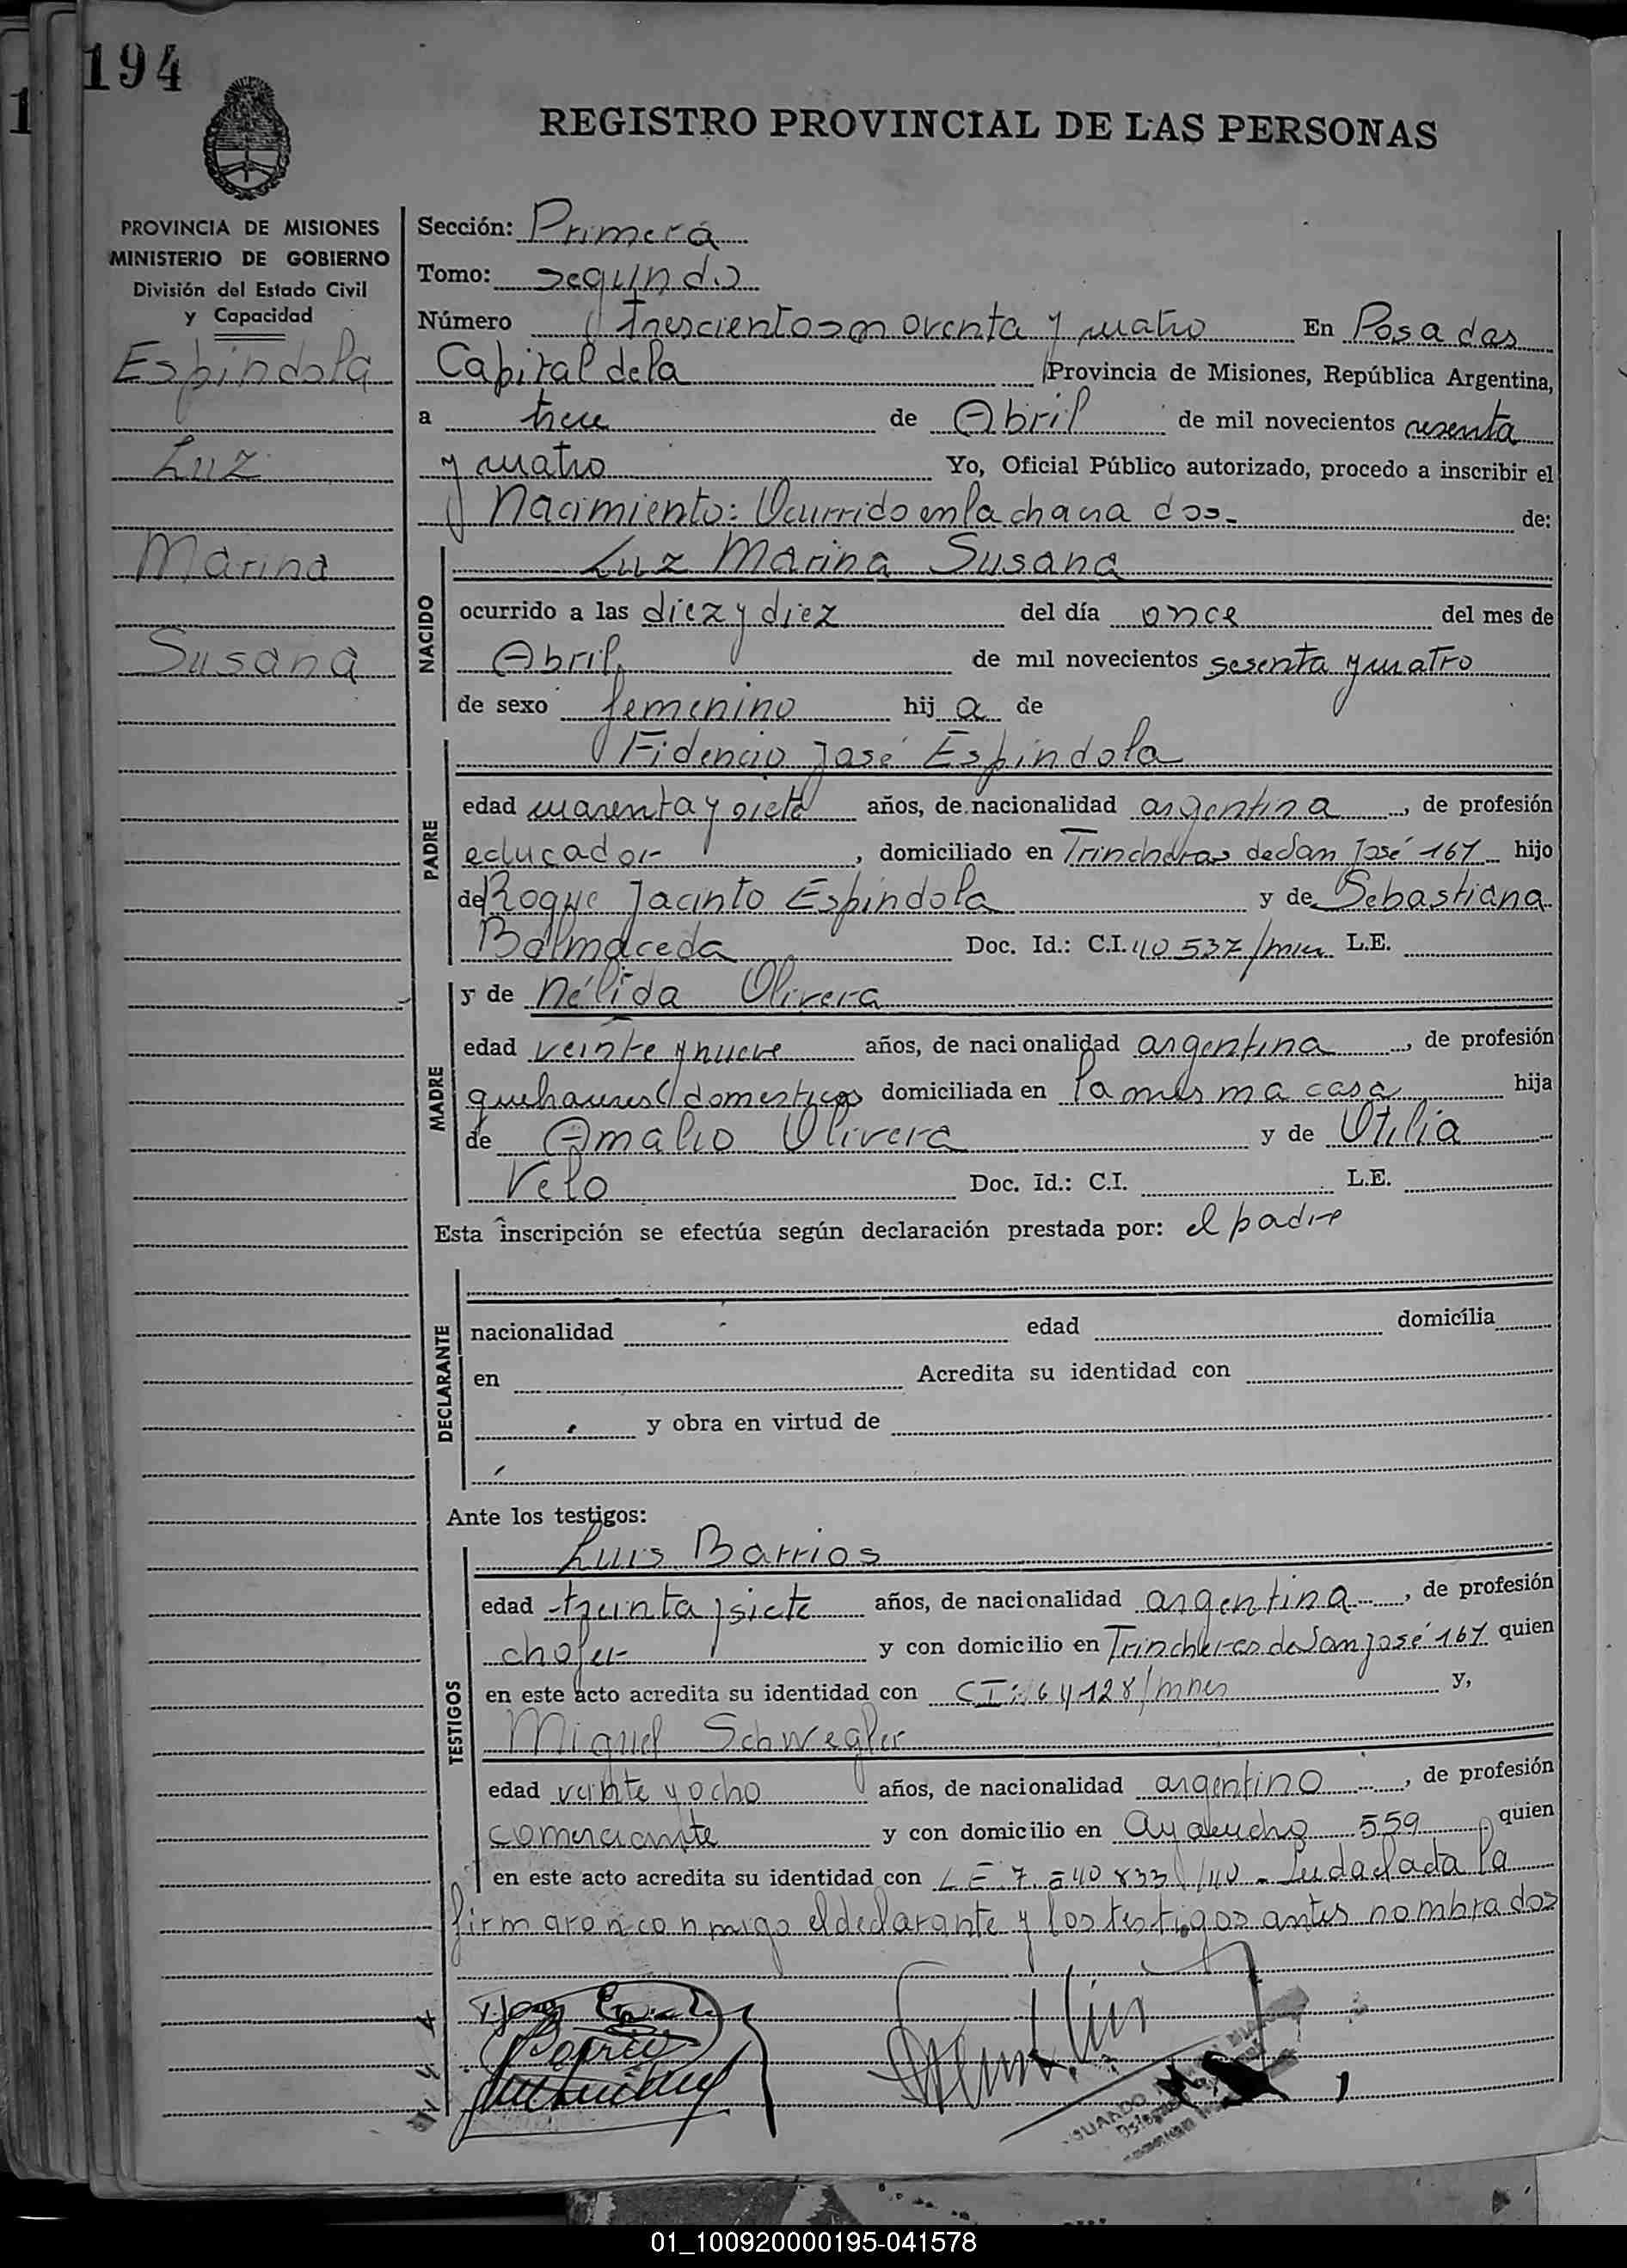 194
REGISTRO PROVINCIAL DE LAS PERSONAS
PROVINCIA DE MISIONES
MINISTERIO DE GOBIERNO
División del Estado Civil
y Capacidad
Espindola
Luz
Marina
Susana
Sección: Primera
Tomo: segundo
Número trescientos noventa y cuatro En Posadas
Capital de la Provincia de Misiones, República Argentina,
a trece de Abril de mil novecientos sesenta
y cuatro Yo, Oficial Público autorizado, procedo a inscribir el
Nacimiento: Ocurrido en la chacra dos- de:
NACIDO
Luz Marina Susana
ocurrido a las diez y diez del día once del mes de
Abril de mil novecientos sesenta y cuatro
de sexo femenino hij a de
PADRE
Fidencio José Espíndola
edad cuarenta y siete años, de nacionalidad argentina, de profesión
educador, domiciliado en Trincheras de San José 167 hijo
de Roque Jacinto Espíndola y de Sebastiana
Balmaceda Doc. Id.: C.I. 40 537/mnes L.E.
MADRE
y de Nélida Olivera
edad veinte y nueve años, de nacionalidad argentina, de profesión
quehaceres domesticos domiciliada en la misma casa hija
de Amalio Olivera y de Otilia
Velo Doc. Id.: C.I. L.E.
Esta inscripción se efectúa según declaración prestada por: el padre
DECLARANTE
nacionalidad edad domicilia
en Acredita su identidad con
y obra en virtud de
Ante los testigos:
TESTIGOS
Luis Barrios
edad treinta y siete años, de nacionalidad argentina, de profesión
chofer y con domicilio en Trincheras de San José 167 quien
en este acto acredita su identidad con CI: 64128/mnes y,
Miguel Schwegler
edad veinte y ocho años, de nacionalidad argentino, de profesión
comerciante y con domicilio en Ayacucho 559 quien
en este acto acredita su identidad con L E. 7.540 833 Leida el acta la
firmaron conmigo el declarante y los testigos antes nombrados
01_100920000195-041578